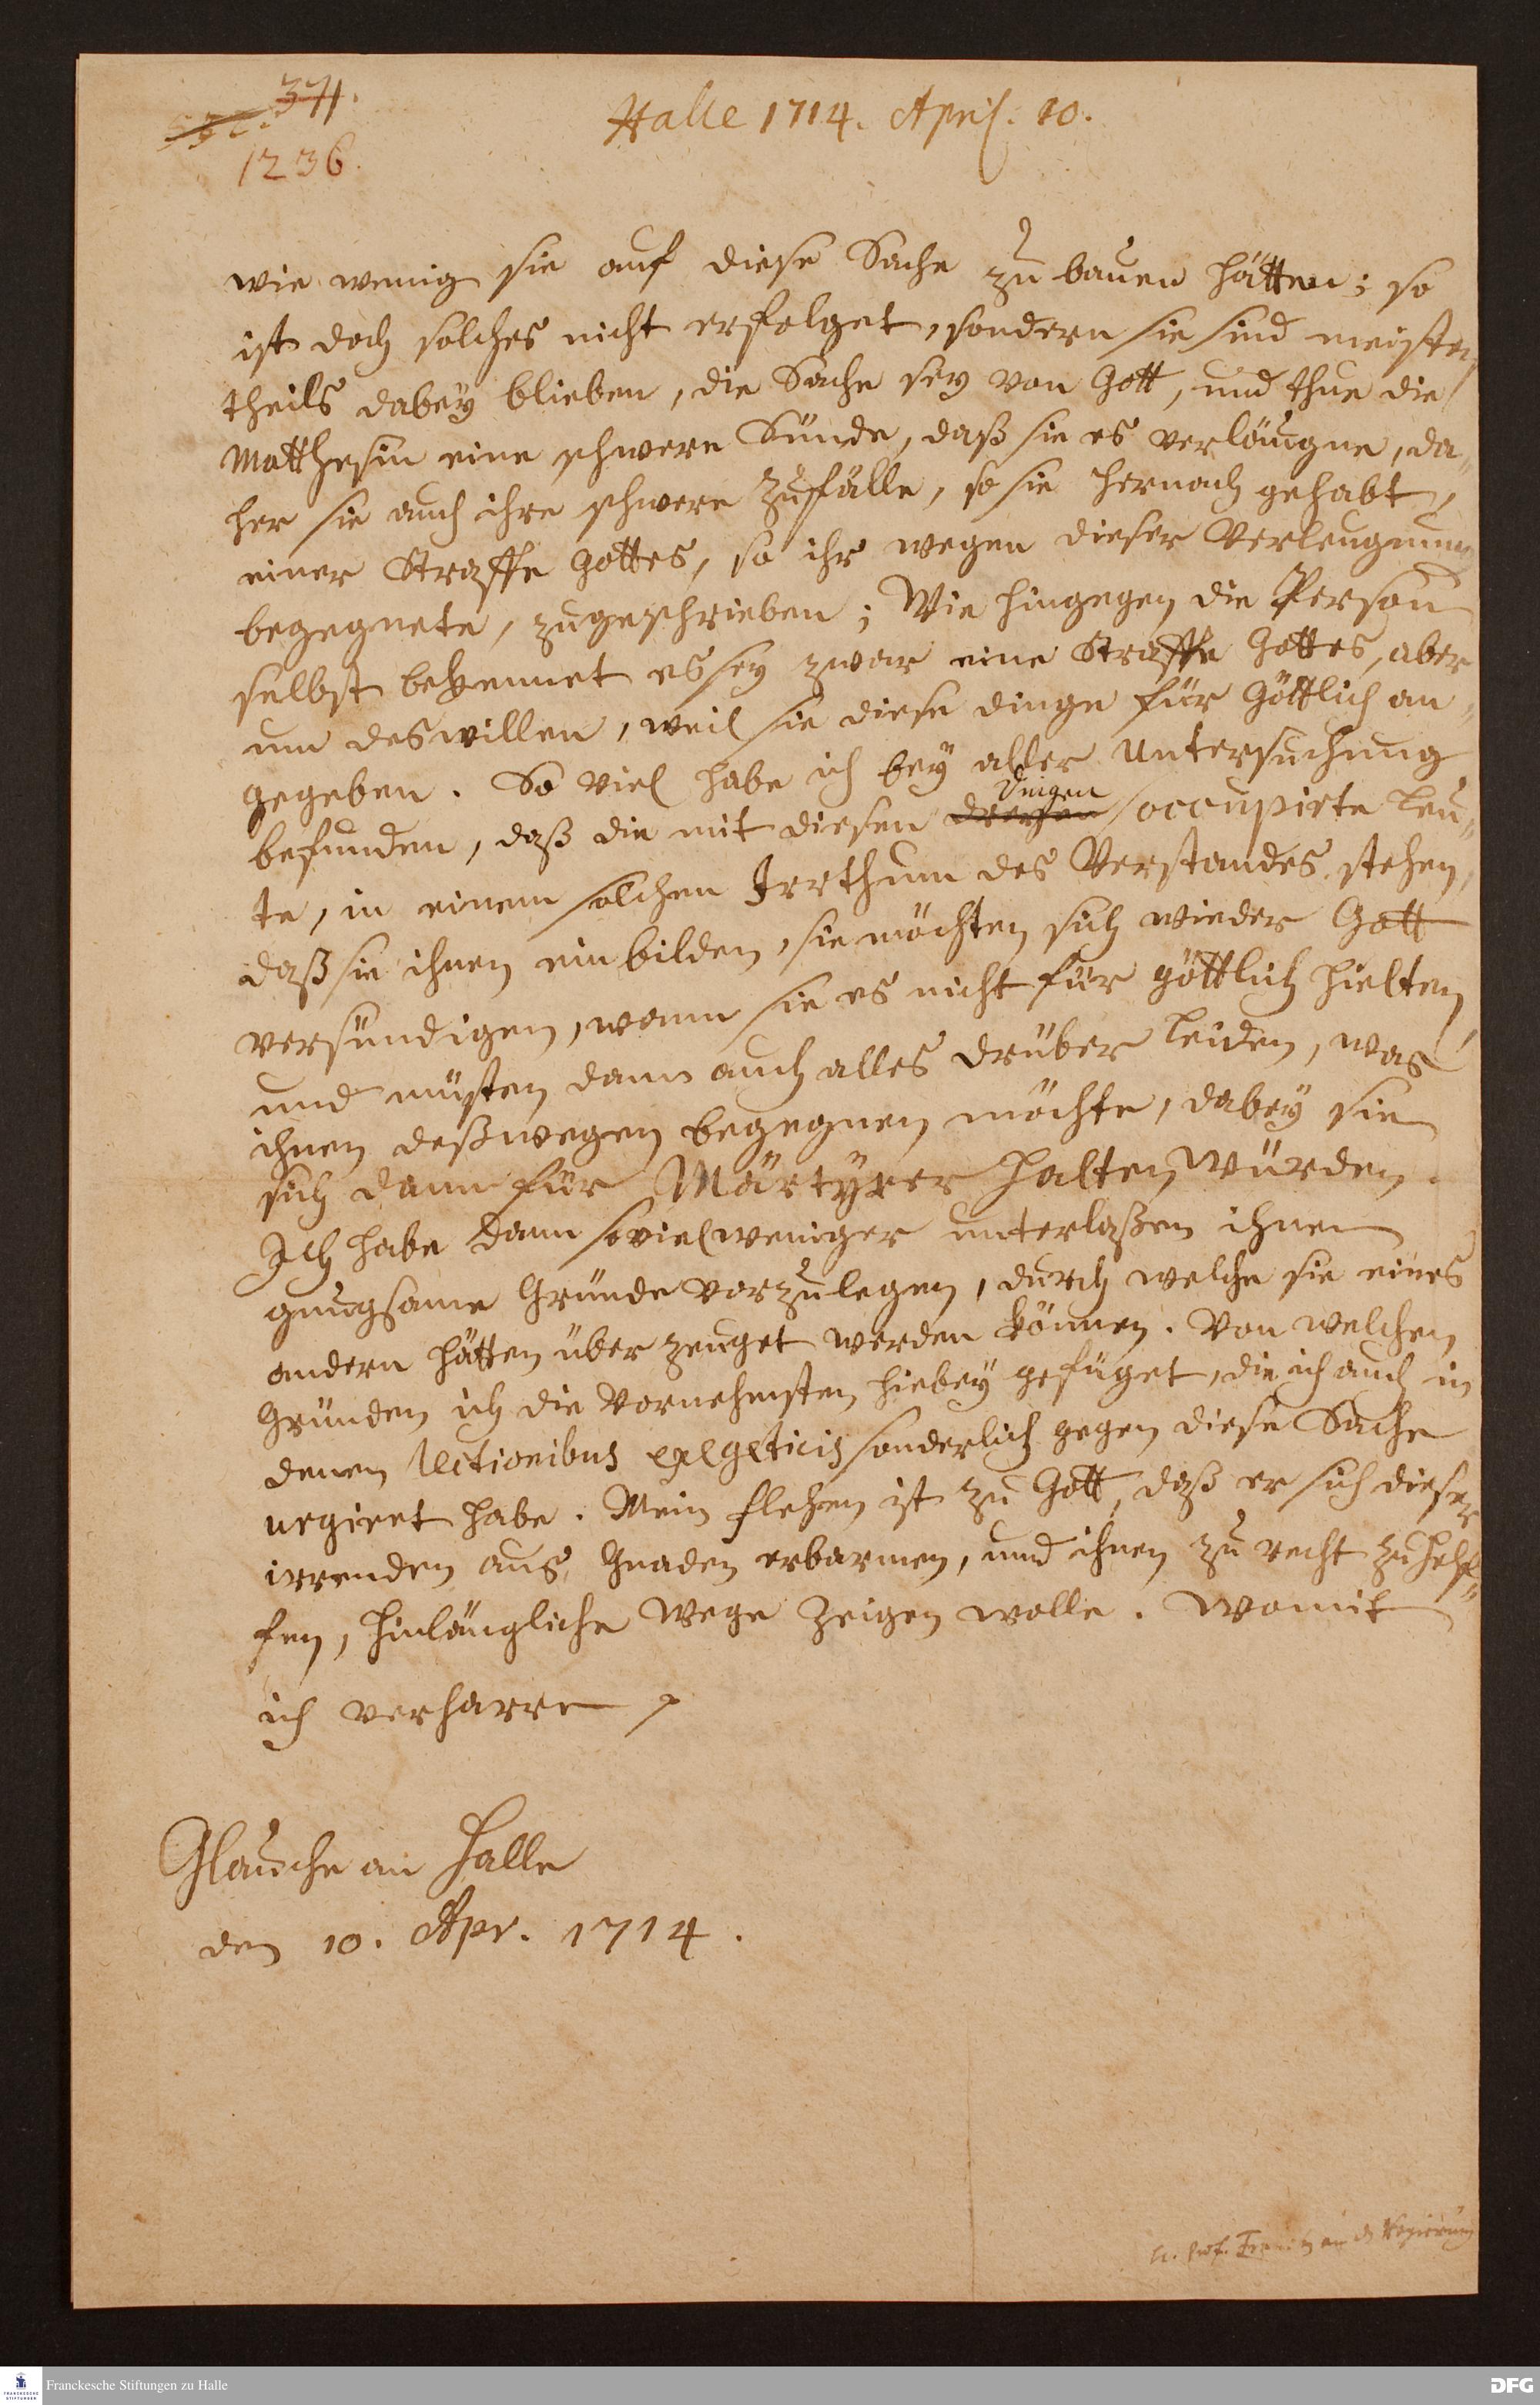 371.
1236.
Halle 1714. April. 10.
wie wenig sie auf diese Sache zu bauen hätten; so
ist doch solches nicht erfolget, sondern sie sind meisten
theils dabey blieben, die Sache sey von Gott, und thue die
Matthesin eine schwere Sünde, daß sie es verläugne, da„
her sie auch ihre schwere Zufälle, so sie hernach gehabt,
einer Straffe Gottes, so ihr wegen dieser Verleugnung
begegnete, zugeschrieben; Wie hingegen die Person
selbst bekennet es sey zwar eine Straffe Gottes, aber
um deswillen, weil sie diese dinge für Göttlich an„
gegeben. So viel habe ich bey aller Untersuchung
befunden, daß die mit diesen Dingen occupirte Leu„
te, in einem solchen Irrthum des Verstandes stehen,
daß sie ihnen einbilden, sie möchten sich wieder Gott
versündigen, wann sie es nicht für göttlich hielten
und müsten dann auch alles drüber leiden, was
ihnen deßwegen begegnen möchte, dabey sie
sich dann für Märtyrer halten würden.
Ich habe dann soviel weniger unterlaßen ihnen
gnugsame Gründe vorzulegen, durch welche sie eines
andern hätten überzeuget werden können. Von welchen
Gründen ich die Vornehmsten hiebey gefüget, die ich auch in
denen lectionibus exegeticis sonderlich gegen diese Sache
urgiret habe. Mein flehen ist zu Gott, daß er sich dieser
irrenden aus Gnaden erbarmen, und ihnen zu recht zu helf„
fen, hinlängliche Wege zeigen wolle. Womit
ich verharre
Glaucha an Halle
den 10. Apr. 1714.
H. Prof. an die Regierung
Franckesche Stiftungen zu Halle
DFG